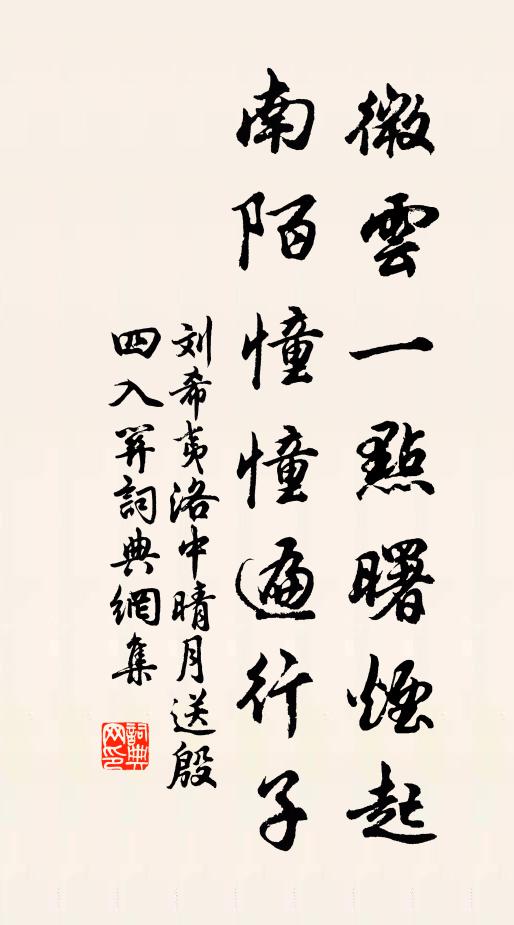 微雲一點曙煙起
南陌憧憧遍行子
刘希夷洛中晴月送殷
四入関詞典網集
詞典
网印